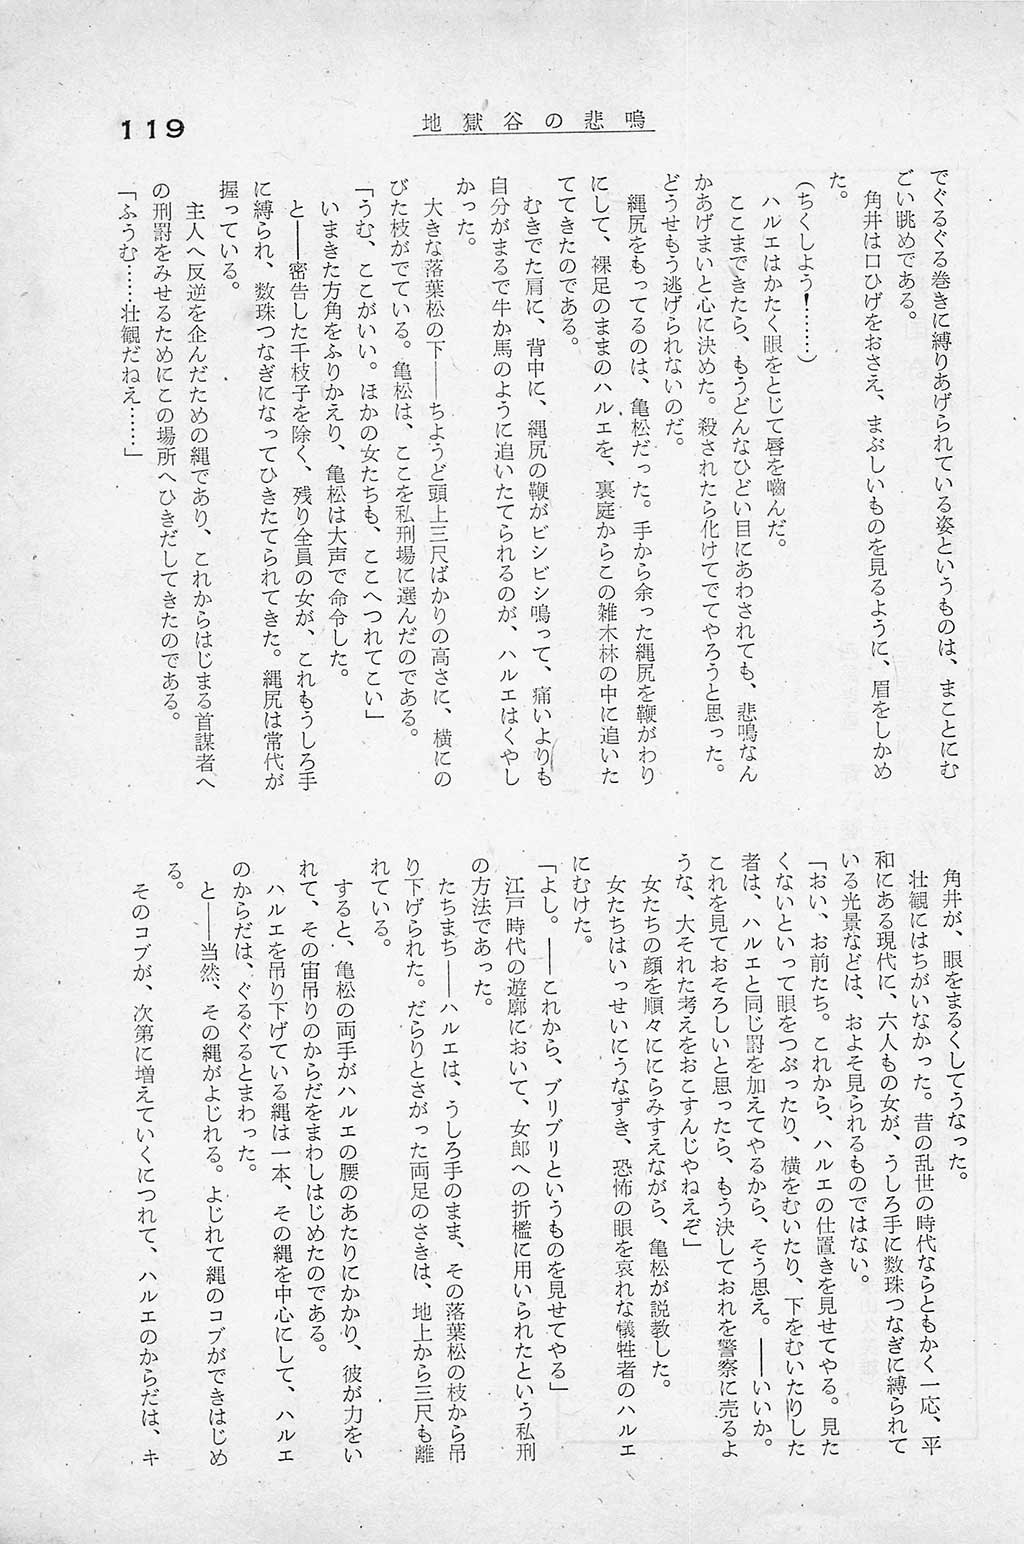 119
地獄谷の悲鳴
でぐるぐる巻きに縛りあげられている姿というものは、まことにむ
ごい眺めである。
角井は口ひげをおさえ、まぶしいものを見るように、眉をしかめ
た。
(ちくしよう!……)
ハルエはかたく眼をとじて唇を噛んだ。
ここまできたら、もうどんなひどい目にあわされても、悲鳴なん
かあげまいと心に決めた。殺されたら化けてでてやろうと思った。
どうせもう逃げられないのだ。
縄尻をもってるのは、亀松だった。手から余った縄尻を鞭がわり
にして、裸足のままのハルエを、裏庭からこの雑木林の中に追いた
ててきたのである。
むきでた肩に、背中に、縄尻の鞭がビシビシ鳴って、痛いよりも
自分がまるで牛か馬のように追いたてられるのが、ハルエはくやし
かった。
大きな落葉松の下――ちようど頭上三尺ばかりの高さに、横にの
びた枝がでている。亀松は、ここを私刑場に選んだのである。
「うむ、ここがいい。ほかの女たちも、ここへつれてこい」
いまきた方角をふりかえり、亀松は大声で命令した。
と――密告した千枝子を除く、残り全員の女が、これもうしろ手
に縛られ、数珠つなぎになってひきたてられてきた。縄尻は常代が
握っている。
主人へ反逆を企んだための縄であり、これからはじまる首謀者へ
の刑罰をみせるためにこの場所へひきだしてきたのである。
「ふうむ……壮観だねえ……」
角井が、眼をまるくしてうなった。
壮観にはちがいなかった。昔の乱世の時代ならともかく一応、平
和にある現代に、六人もの女が、うしろ手に数珠つなぎに縛られて
いる光景などは、およそ見られるものではない。
「おい、お前たち。これから、ハルエの仕置きを見せてやる。見た
くないといって眼をつぶったり、横をむいたり、下をむいたりした
者は、ハルエと同じ罰を加えてやるから、そう思え。――いいか。
これを見ておそろしいと思ったら、もう決しておれを警察に売るよ
うな、大それた考えをおこすんじゃねえぞ」
女たちの顔を順々ににらみすえながら、亀松が説教した。
女たちはいっせいにうなずき、恐怖の眼を哀れな犠牲者のハルエ
にむけた。
「よし。――これから、ブリブリというものを見せてやる」
江戸時代の遊廓において、女郎への折檻に用いられたという私刑
の方法であった。
たちまち――ハルエは、うしろ手のまま、その落葉松の枝から吊
り下げられた。だらりとさがった両足のさきは、地上から三尺も離
れている。
すると、亀松の両手がハルエの腰のあたりにかかり、彼が力をい
れて、その宙吊りのからだをまわしはじめたのである。
ハルエを吊り下げている縄は一本、その縄を中心にして、ハルエ
のからだは、ぐるぐるとまわった。
と――当然、その縄がよじれる。よじれて縄のコブができはじめ
る。
そのコブが、次第に増えていくにつれて、ハルエのからだは、キ